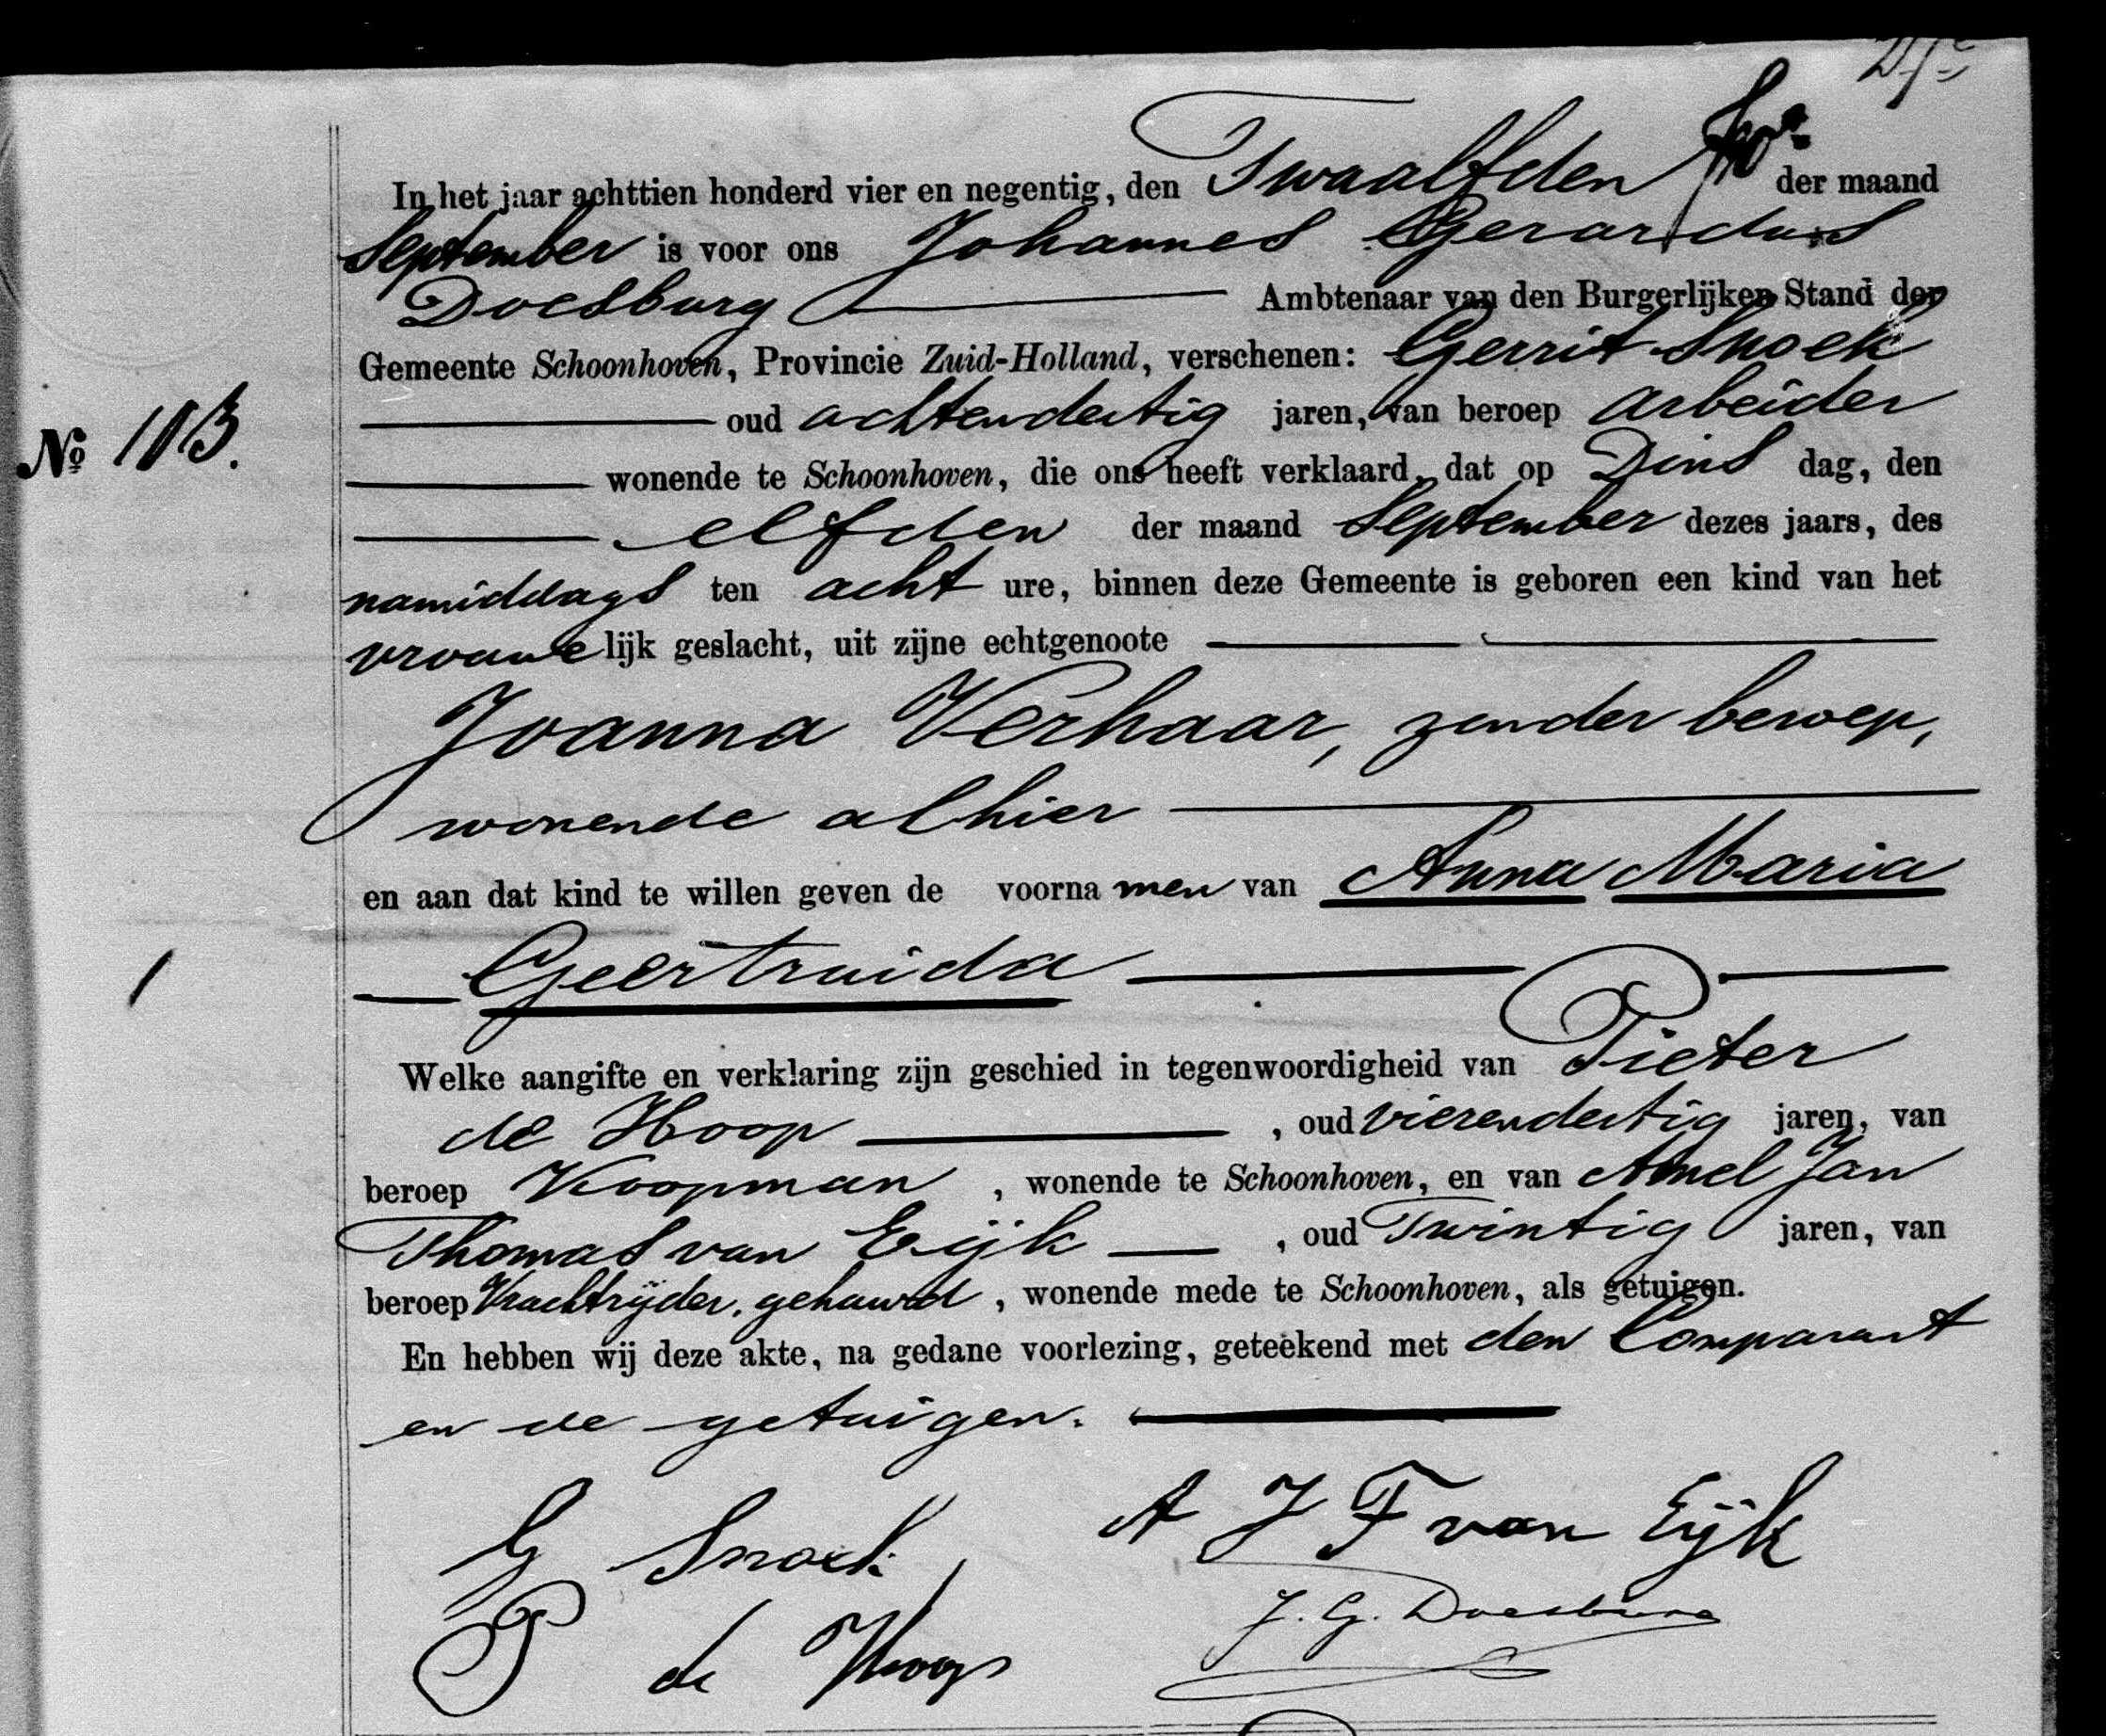 In het jaar achttien honderd vier en negentig, den Twaalfden der maand
September is voor ons Johannes Gerardus
Doesburg Ambtenaar van den Burgerlijken Stand der
Gemeente Schoonhoven, Provincie Zuid-Holland, verschenen: Gerrit Snoek
oud achtendertig jaren, van beroep arbeider
No 103.
wonende te Schoonhoven, die ons heeft verklaard, dat op Dins dag, den
elfden der maand September dezes jaars, des
namiddags ten acht ure, binnen deze Gemeente is geboren een kind van het
vrouwe lijk geslacht, uit zijne echtgenoote
Joanna Verhaar, zonder beroep,
wonende alhier
en aan dat kind te willen geven de voorna men van Anna Maria
Geertruida
Welke aangifte en verklaring zijn geschied in tegenwoordigheid van Pieter
de Hoop , oud vierendertig jaren, van
beroep Koopman , wonende te Schoonhoven, en van Amel Jan
Thomas van Eijk , oud Twintig jaren, van
beroep Vrachtrijder, gehuwd , wonende mede te Schoonhoven, als getuigen.
En hebben wij deze akte, na gedane voorlezing, geteekend met den Comparant
en de getuigen.
G Snoek A J T van Eijk
P de Hoop J. G. Doesburg